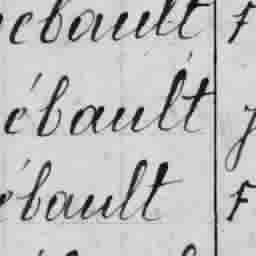 ebault F
ébault
ébault F